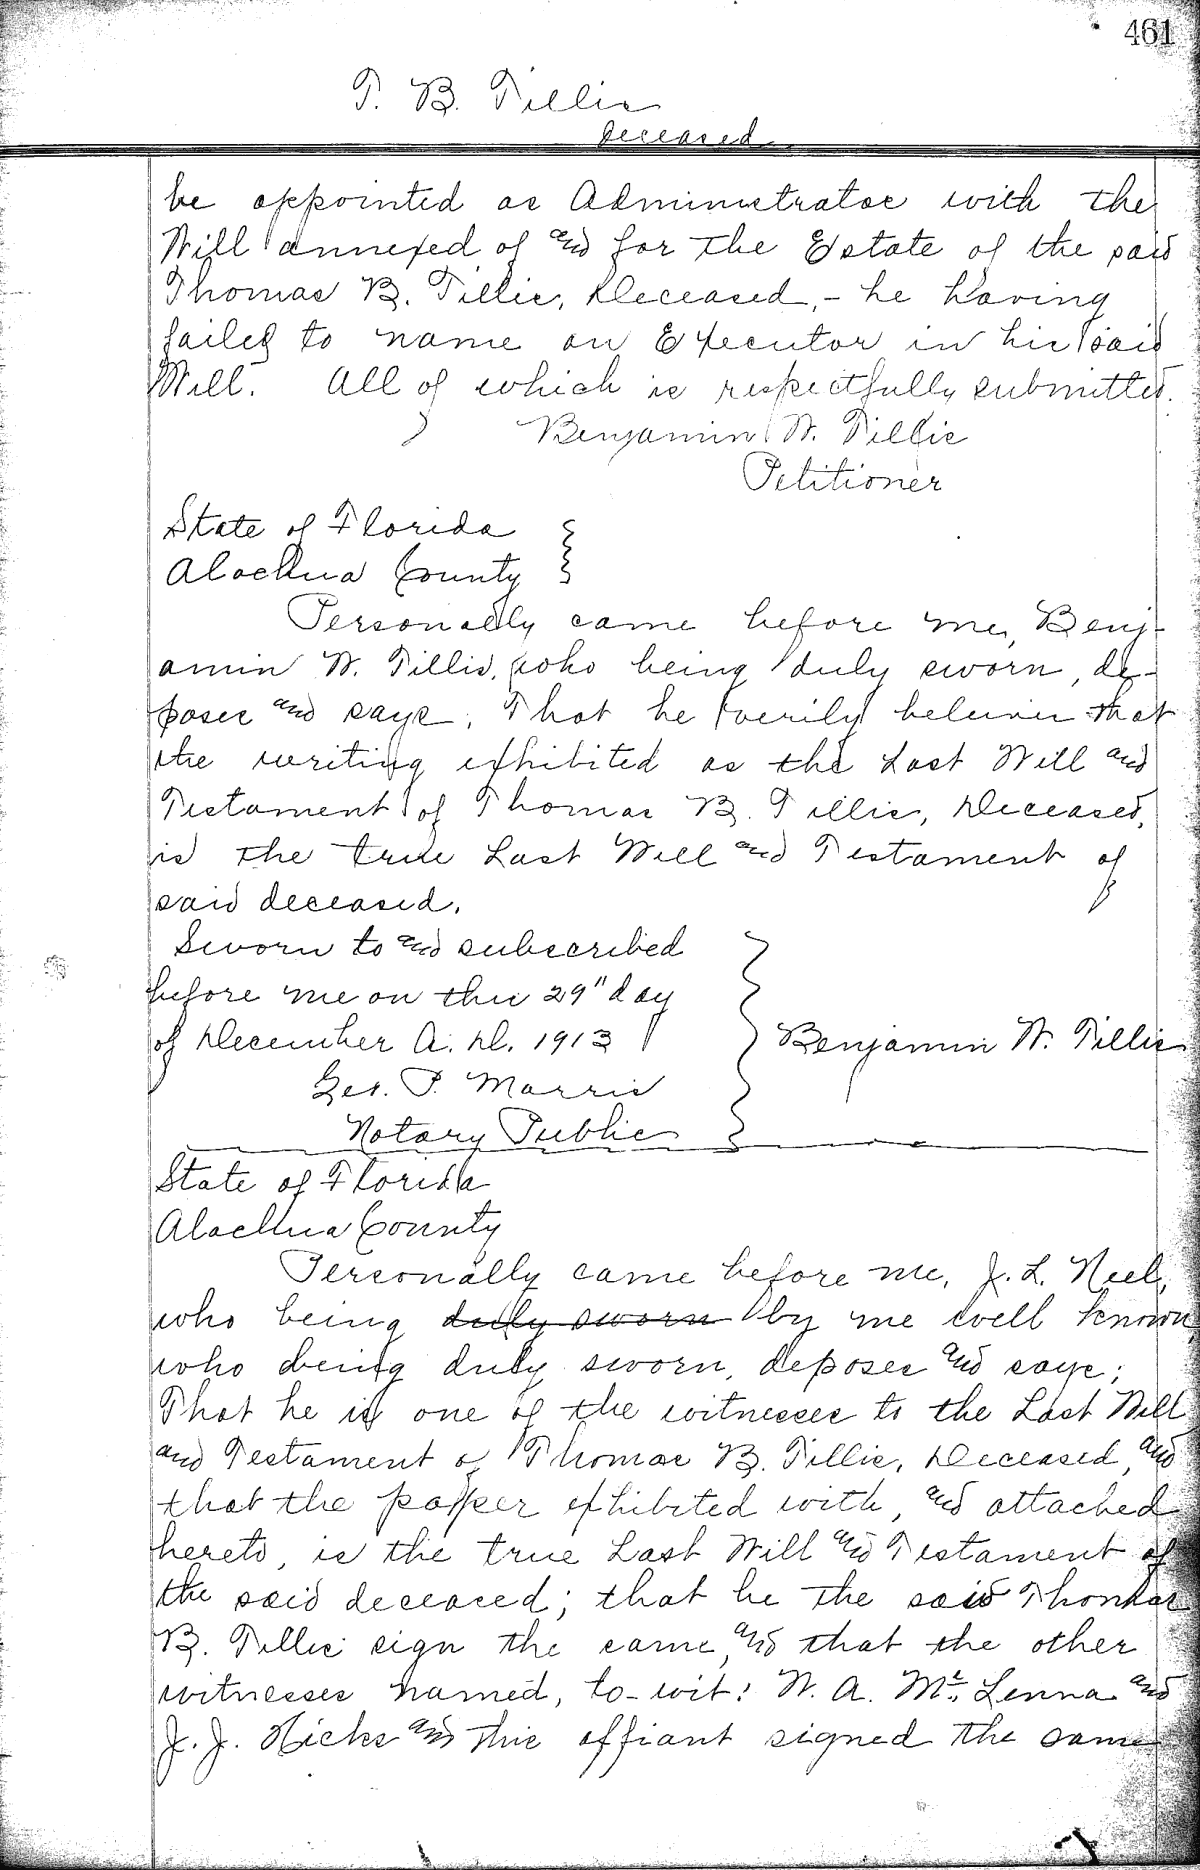 461
T. B. Tillis
Deceased
be appointed as Administrator with the
Will annexed of and for the Estate of the said
Thomas B. Tillis, Deceased, - he having
failed to name an Executor in his said
Will. All of which is respectfully submitted.
Benjamin W. Tillis
Petitioner
State of Florida
Alachua County
Personally came before me, Benj-
amin W. Tillis, who being duly sworn, de-
poses and says, That he verily believes that
the writing exhibited as the Last Will and
Testament of Thomas B. Tillis, Deceased,
is the true Last Will and Testament of
said deceased.
Sworn to and subscribed
before me on this 29" day
of December A. D. 1913
Benjamin W. Tillis
Geo. P. Morris
Notary Public
State of Florida
Alachua County
Personally came before me, J. L. Neel,
who being duly sworn by me well known,
who being duly sworn, deposes and says;
That he is one of the witnesses to the Last Will
and Testament of Thomas B. Tillis, Deceased, and
that the paper exhibited with, and attached
hereto, is the true Last Will and Testament of
the said deceased; that he the said Thomas
B. Tillis sign the same, and that the other
witnesses named, to-wit: W. A. Mc. Lenna and
J. J. Hicks and this affiant signed the same